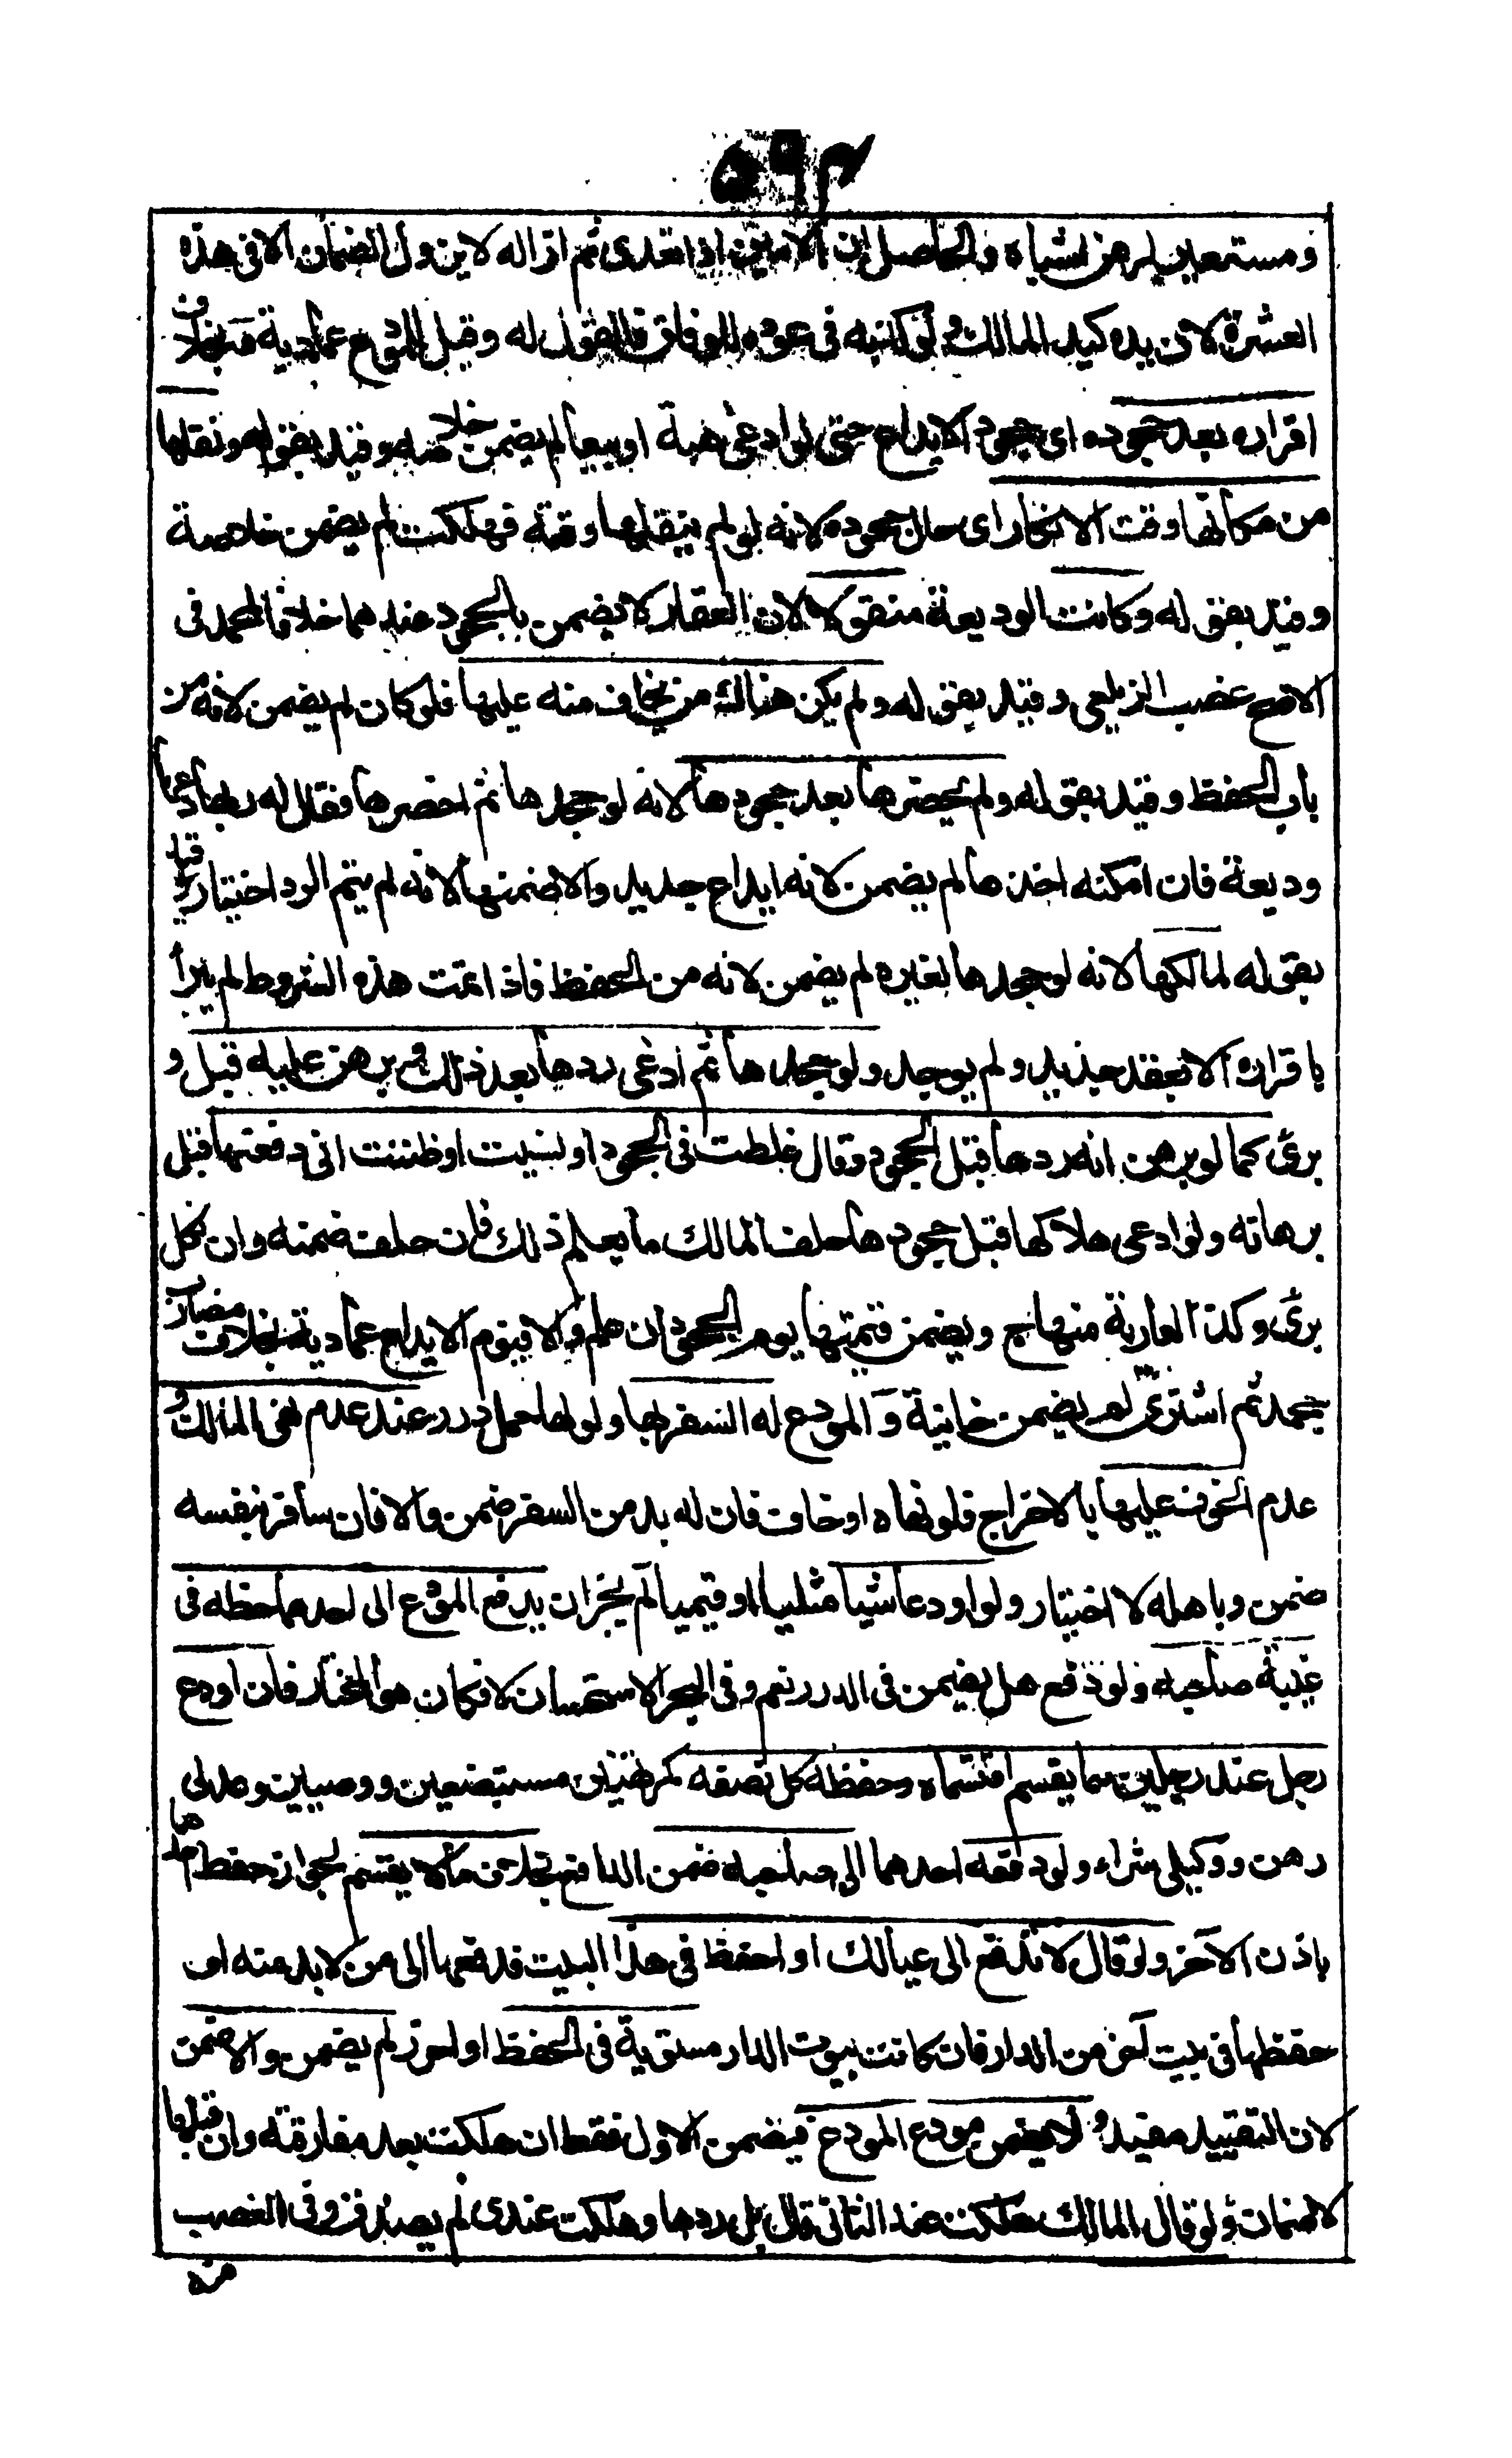 ٥٩٣
ومستعير لرهن اشباه والحاصل ان الامين اذا تعدى ثم ازاله لا يزول الضمان الا في هذه
العشرة لان يده كيد المالك ولو كذبه في عوده للوفاق فالقول له وقيل للمودع عمادية وبخلاف
اقراره بعد جحوده اى جحود الايداع حتى لو ادعى هبة او بيعا لم يضمن خلاصه وقيد بقوله ونقلها
من مكانها وقت الانكار اى حال جحوده لانه لو لم ينقلها وقته فهلكت لم يضمن خلاصة
وقيد بقوله وكانت الوديعة منقولا لان العقار لا يضمن بالجحود عندهما خلافا لمحمد فى
الاصح غصب الزيلعى وقيد بقوله ولم يكن هناك من يخاف منه عليها فلو كان لم يضمن لانه من
باب الحفظ وقيد بقوله ولم يحضرها بعد جحودها لانه لو جحدها ثم احضرها فقال له ربها دعها
وديعة فان امكنه اخذها لم يضمن لانه ايداع جديد والا ضمنها لانه لم يتم الرد اختيار وقيد
بقوله لمالكها لانه لو جحدها لغيره لم يضمن لانه من الحفظ فاذا تمت هذه الشروط لم يبرأ
باقراره الا بعقد جديد ولم يوجد ولو جحدها ثم ادعى ردها بعد ذلك وبرهن عليه قبل و
برئ كما لو برهن انه ردها قبل الجحود وقال غلطت في الجحود او نسيت او ظننت انى دفعتها قبل
برهانه ولو ادعى هلاكها قبل جحودها حلف المالك ما يعلم ذلك فان حلف ضمنه وان نكل
برئ وكذا العارية منهاج ويضمن قيمتها يوم الجحود ان علم والا فيوم الايداع عمادية بخلاف مضارب
جحد ثم اشترى لم يضمن خانية و المودع له السفر بها ولو لها حمل درر عند عدم نهى المالك و
عدم الخوف عليها بالاخراج فلو نهاه او خاف فان له بد من السفر ضمن والا فان سافر بنفسه
ضمن وباهله لا اختيار ولو اودعا شيأ مثليا او قيميا لم يجز ان يدفع المودع الى احدهما حظه فى
غيبة صاحبه ولو دفع هل يضمن فى الدرر نعم وفى البحر الاستحسان لا فكان هو المختار فان اودع
رجل عند رجلين مما يقسم اقتسماه وحفظه كل نصفه كمرتهنين مستبضعين ووصيين وعدلى
رهن ووكيلى شراء ولو دفعه احدهما الى صاحبه ضمن الدافع بخلاف ما لا يقسم لجواز حفظ احدهما
باذن الآخر ولو قال لا تدفع الى عيالك او احفظ فى هذا البيت فدفعها الى من لا بد منه او
حفظها فى بيت آخر من الدار فان كانت بيوت الدار مستوية فى الحفظ او احرز لم يضمن والا ضمن
لان التقييد مفيد ولا يضمن مودع المودع فيضمن الاول فقط ان هلكت بعد مفارقته وان قبلها
لا ضمان ولو قال المالك هلكت عند الثانى قال بل ردها وهلكت عندى لم يصدق وفى الغصب
منه